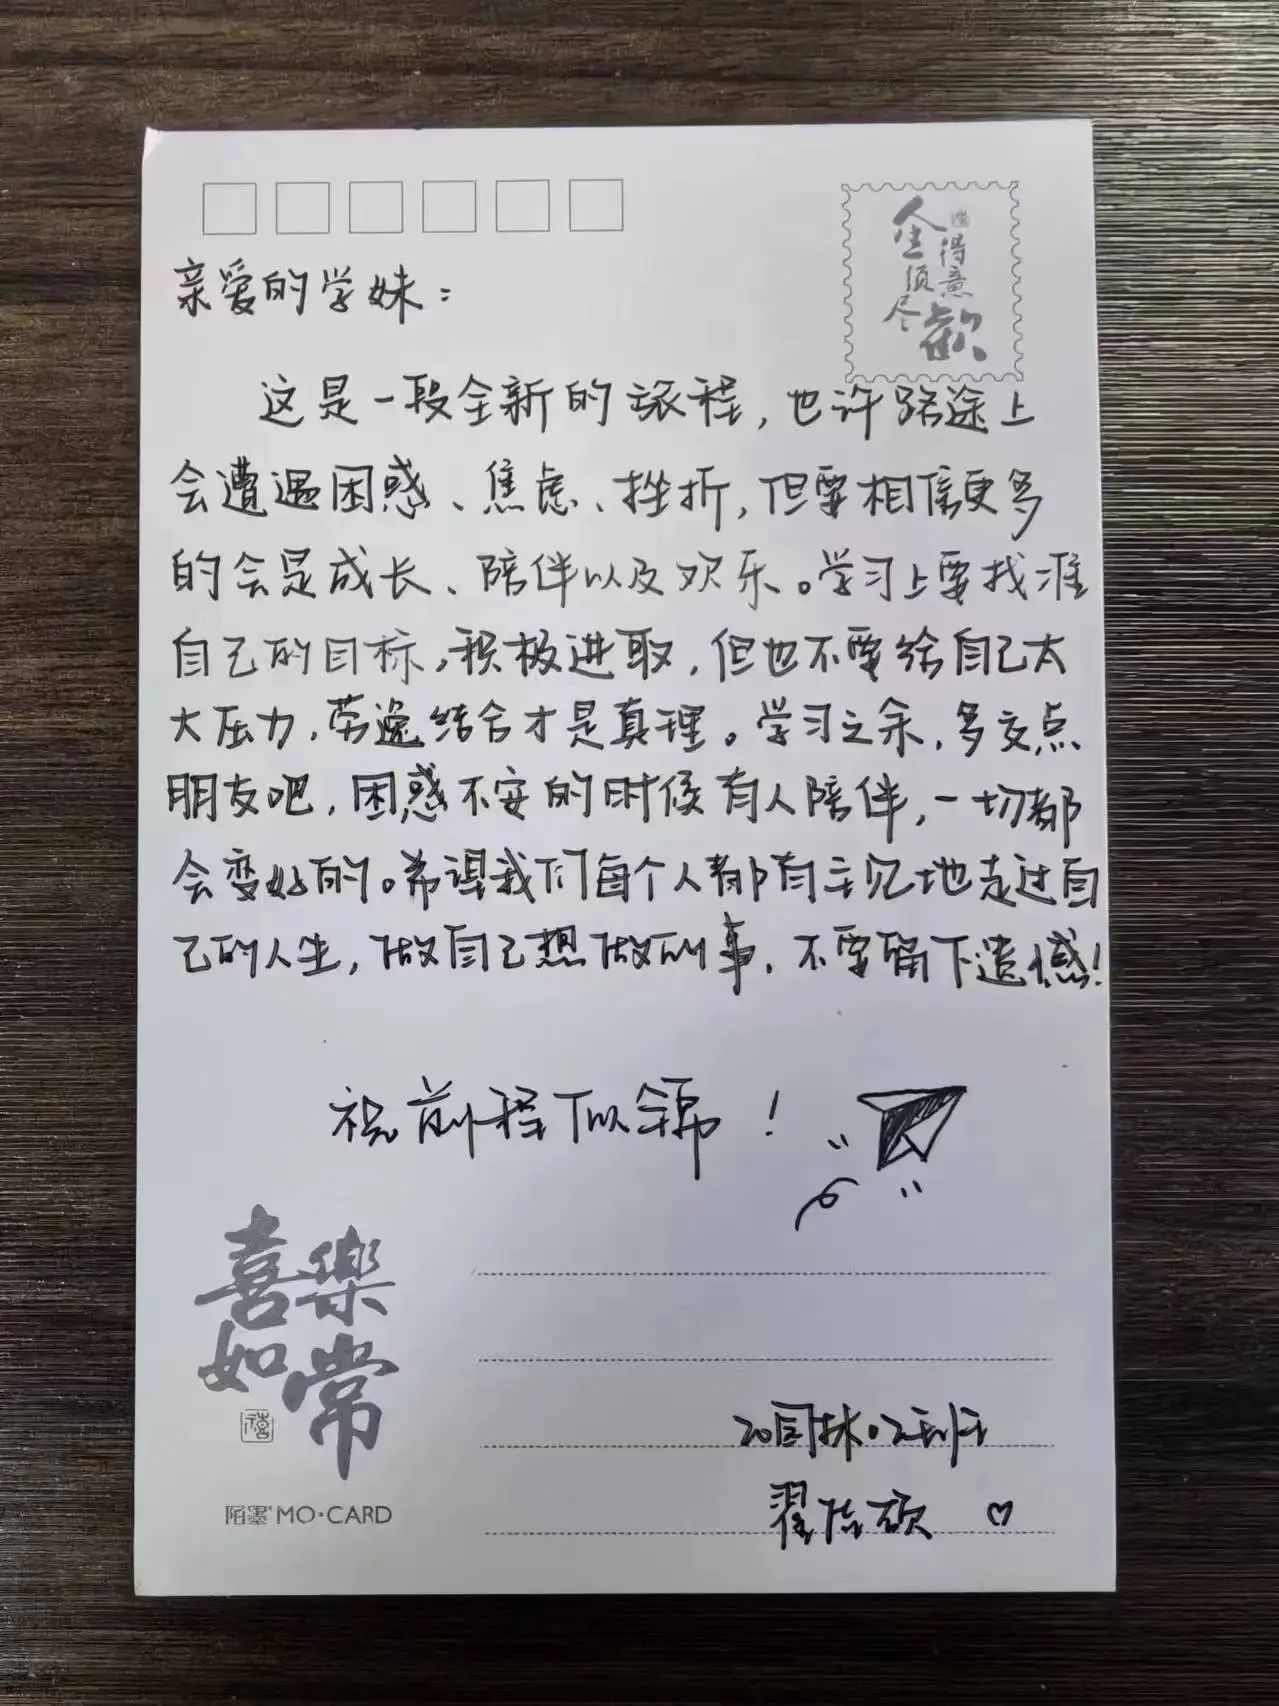 人生得意
须尽欢
亲爱的学妹：
这是一段全新的旅程，也许路途上
会遭遇困惑、焦虑、挫折，但要相信更多
的会是成长、陪伴以及欢乐。学习上要找准
自己的目标，积极进取，但也不要给自己太
大压力，劳逸结合才是真理。学习之余，多交点
朋友吧，困惑不安的时候有人陪伴，一切都
会变好的。希望我们每个人都有主见地走过自
己的人生，做自己想做的事，不要留下遗憾！
祝前程似锦！
喜乐
如常
陌墨 MO·CARD
20园林02班
翟 硕